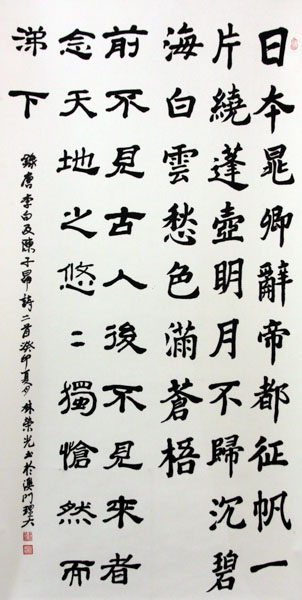 日本晁卿辭帝都征帆一
片繞蓬壺明月不歸沉碧
海白雲愁色滿蒼梧
前不見古人後不見來者
念天地之悠〻獨愴然而
涕下
錄唐李白及陳子昂詩二首癸卯夏林榮光書於澳門理大